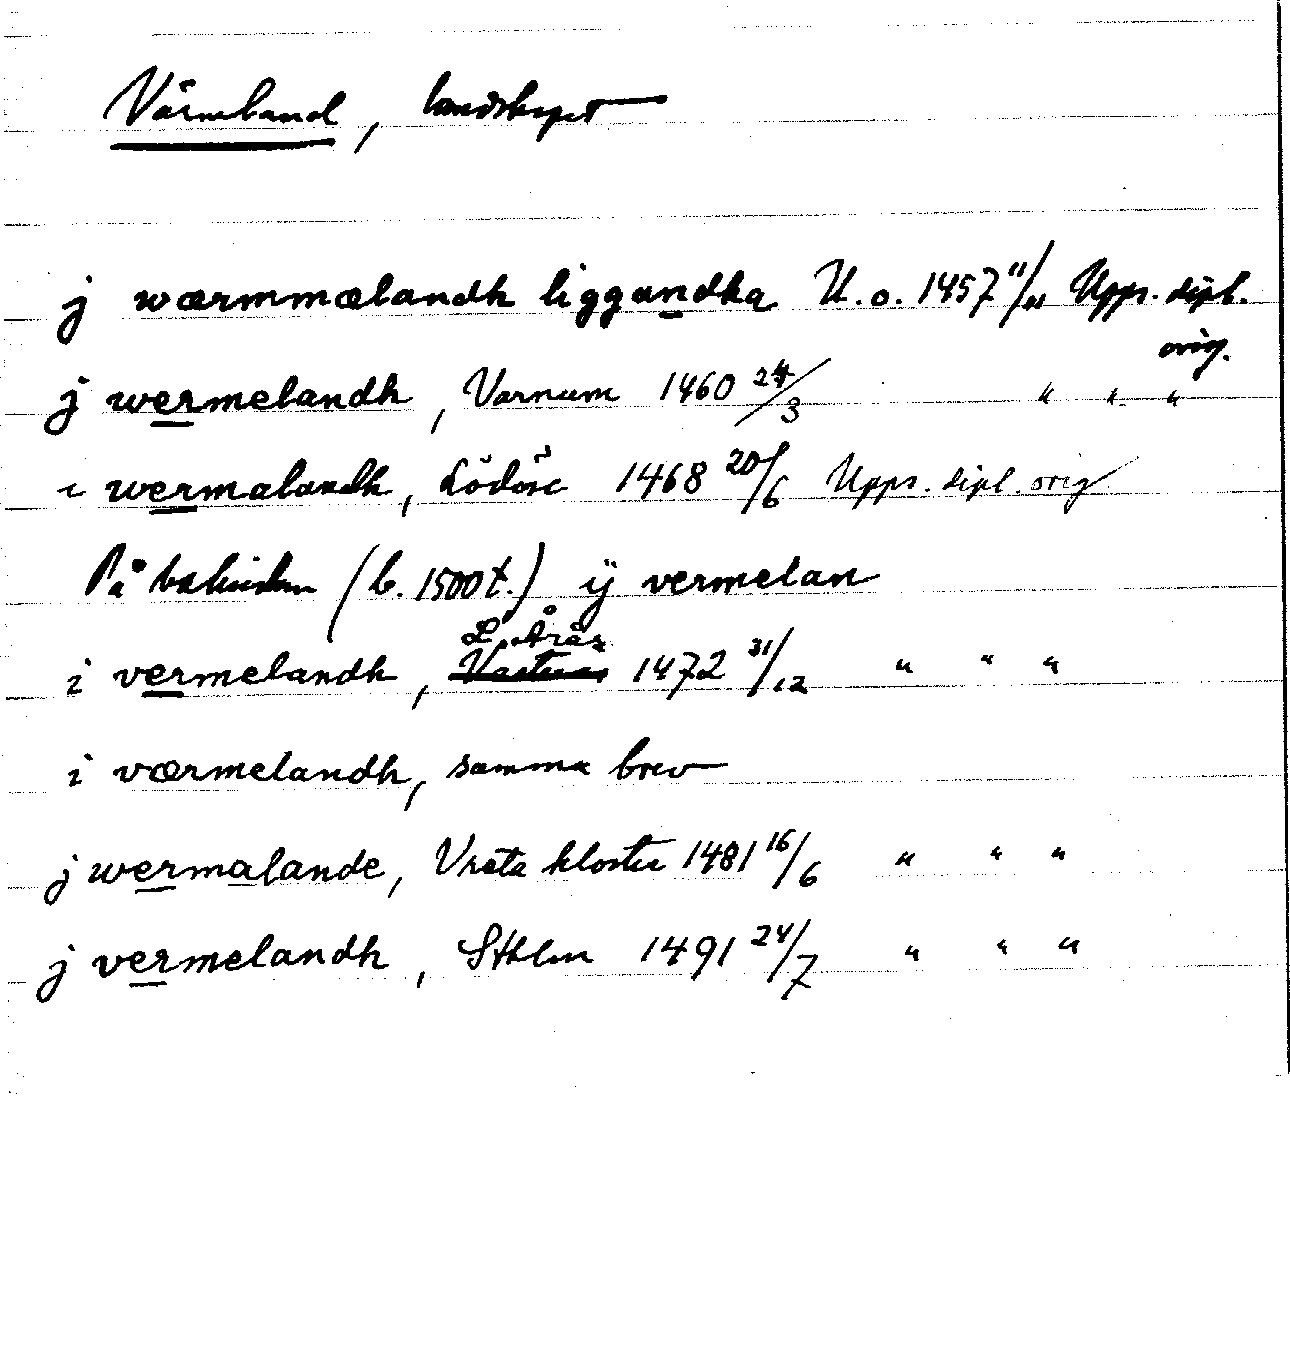 Värmland, landskapet
j wærmmælandh liggandha U.o. 1457 11/11 Upps. dipl.
orig.
j wermelandh, Varnum 1460 24/3 " " "
i wermalandh, Lödöse 1468 20/6 Upps. dipl. orig
På baksidan (b. 1500 t.) ij vermelan
L. Årås
i vermelandh, 1472 31/12 " " "
i værmelandh, samma brev
j wermalande, Vreta kloster 1481 16/6 " " "
j vermelandh, Sthlm 1491 24/7 " " "